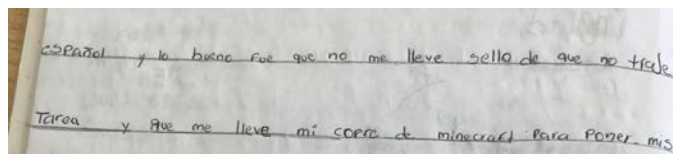 español y lo bueno fue que no me lleve sello de que no traje
Tarea y que me lleve mi copre de minecraft para poner mis